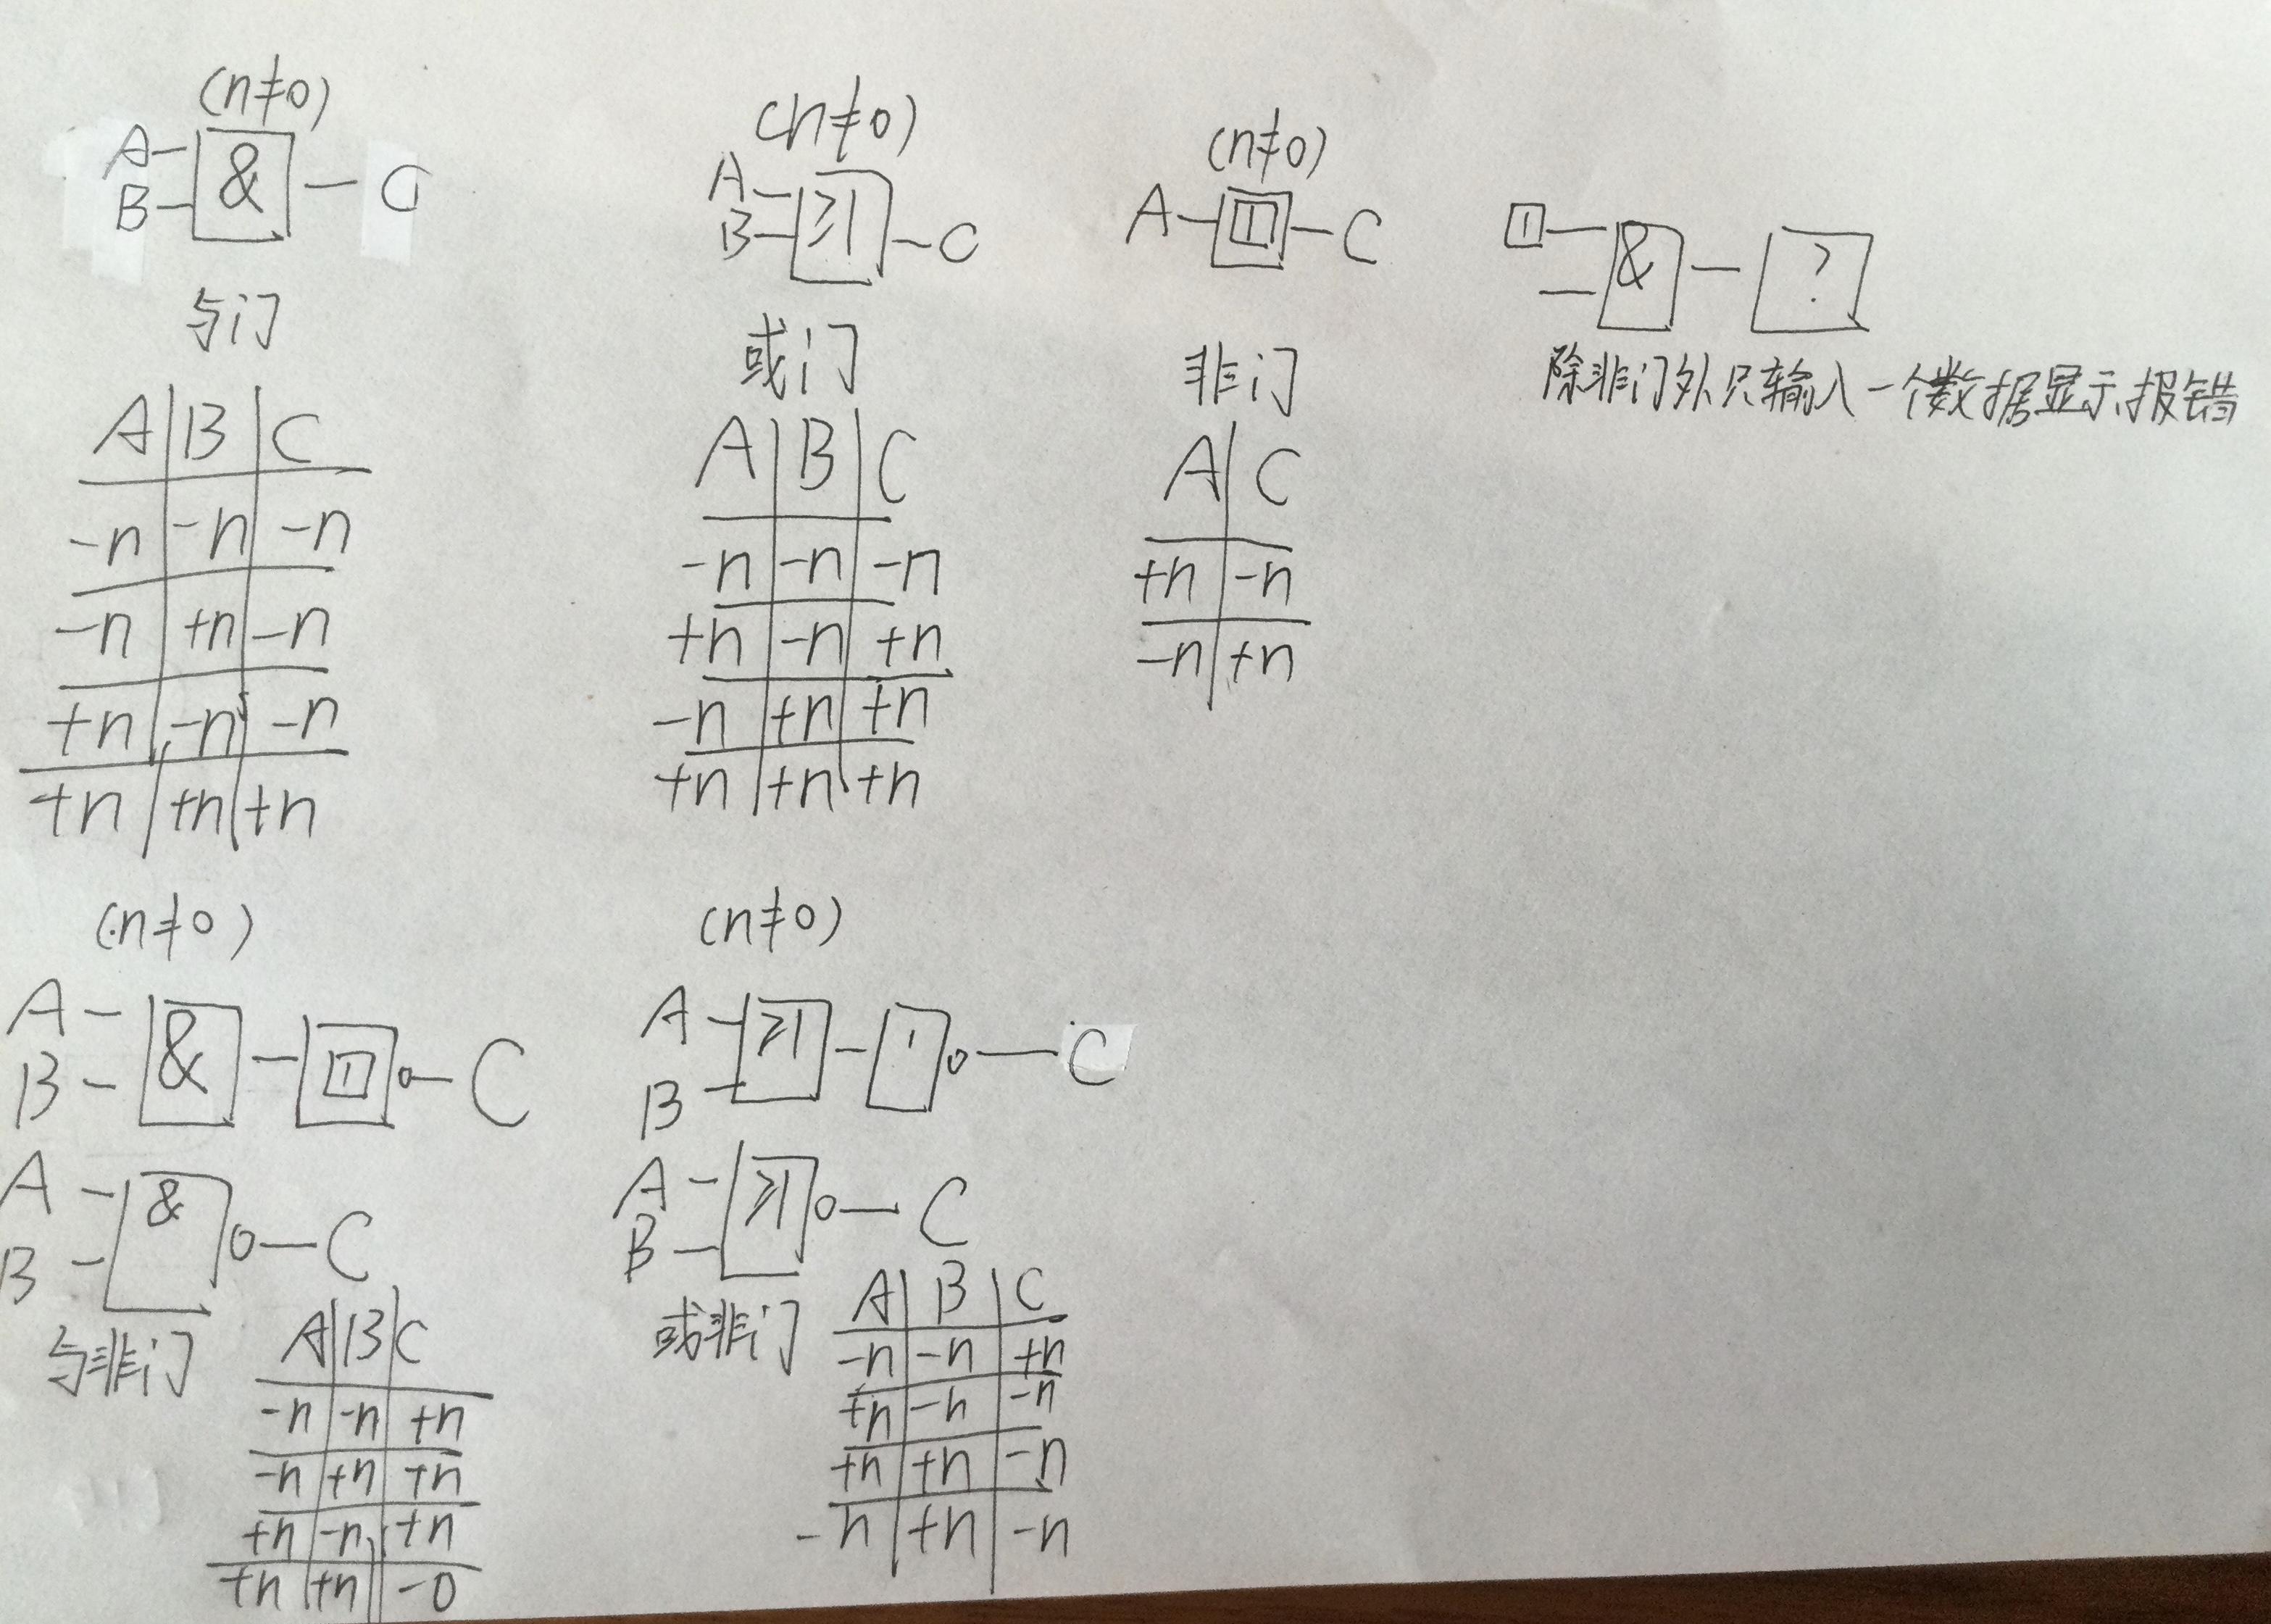 (n≠0)
A
B
&
C
与门
A B C
-n -n -n
-n +n -n
+n -n -n
+n +n +n
(n≠0)
A
B
≥1
C
或门
A B C
-n -n -n
+n -n +n
-n +n +n
+n +n +n
(n≠0)
A 1 C
非门
A C
+n -n
-n +n
1 & ?
除非门外只输入一个数据显示报错
(n≠0)
A
B
& 1 C
A
B
& C
与非门
A B C
-n -n +n
-n +n +n
+n -n +n
+n +n -0
(n≠0)
A
B
≥1 1 C
A
B
≥1 C
或非门
A B C
-n -n +n
+n -n -n
+n +n -n
-n +n -n